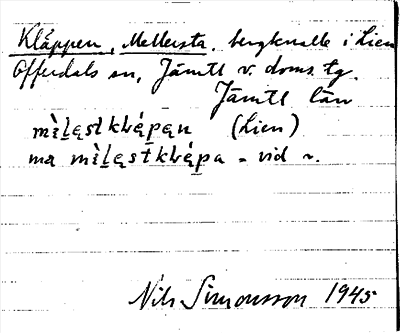 Kläppen, Mellersta, bergknalle i Lien
Offerdals sn, Jämtl v. doms. tg.
Jämtl län
mìḷąstkḷǻpąn (Lien)
ma mìḷąstkḷǻpa = vid ~.
Nils Simonsson 1945